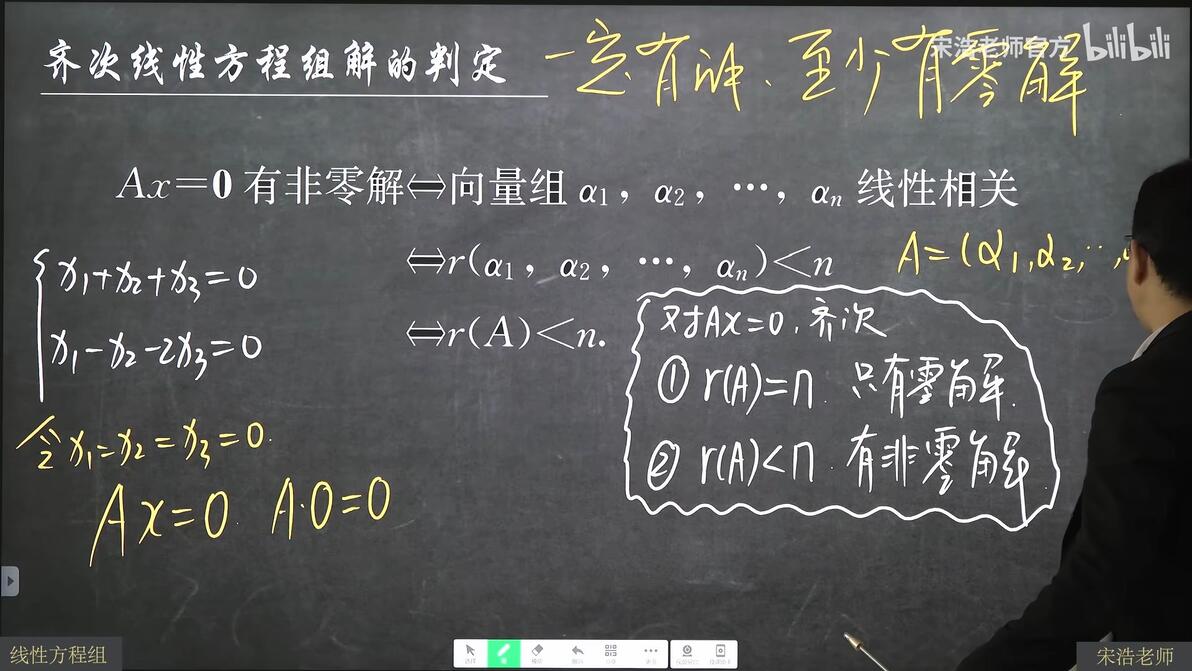 齐次线性方程组解的判定 一定有解、至少有零解
宋浩老师官方 bilibili
Ax=0 有非零解⇔向量组 α₁，α₂，…，αₙ 线性相关
⇔r(α₁，α₂，…，αₙ)<n
A=(α₁,α₂,…,
⇔r(A)<n.
x₁+x₂+x₃=0
x₁-x₂-2x₃=0
令x₁=x₂=x₃=0.
Ax=0 A·0=0
对AX=0.齐次
① r(A)=n 只有零解.
② r(A)<n. 有非零解
线性方程组
宋浩老师